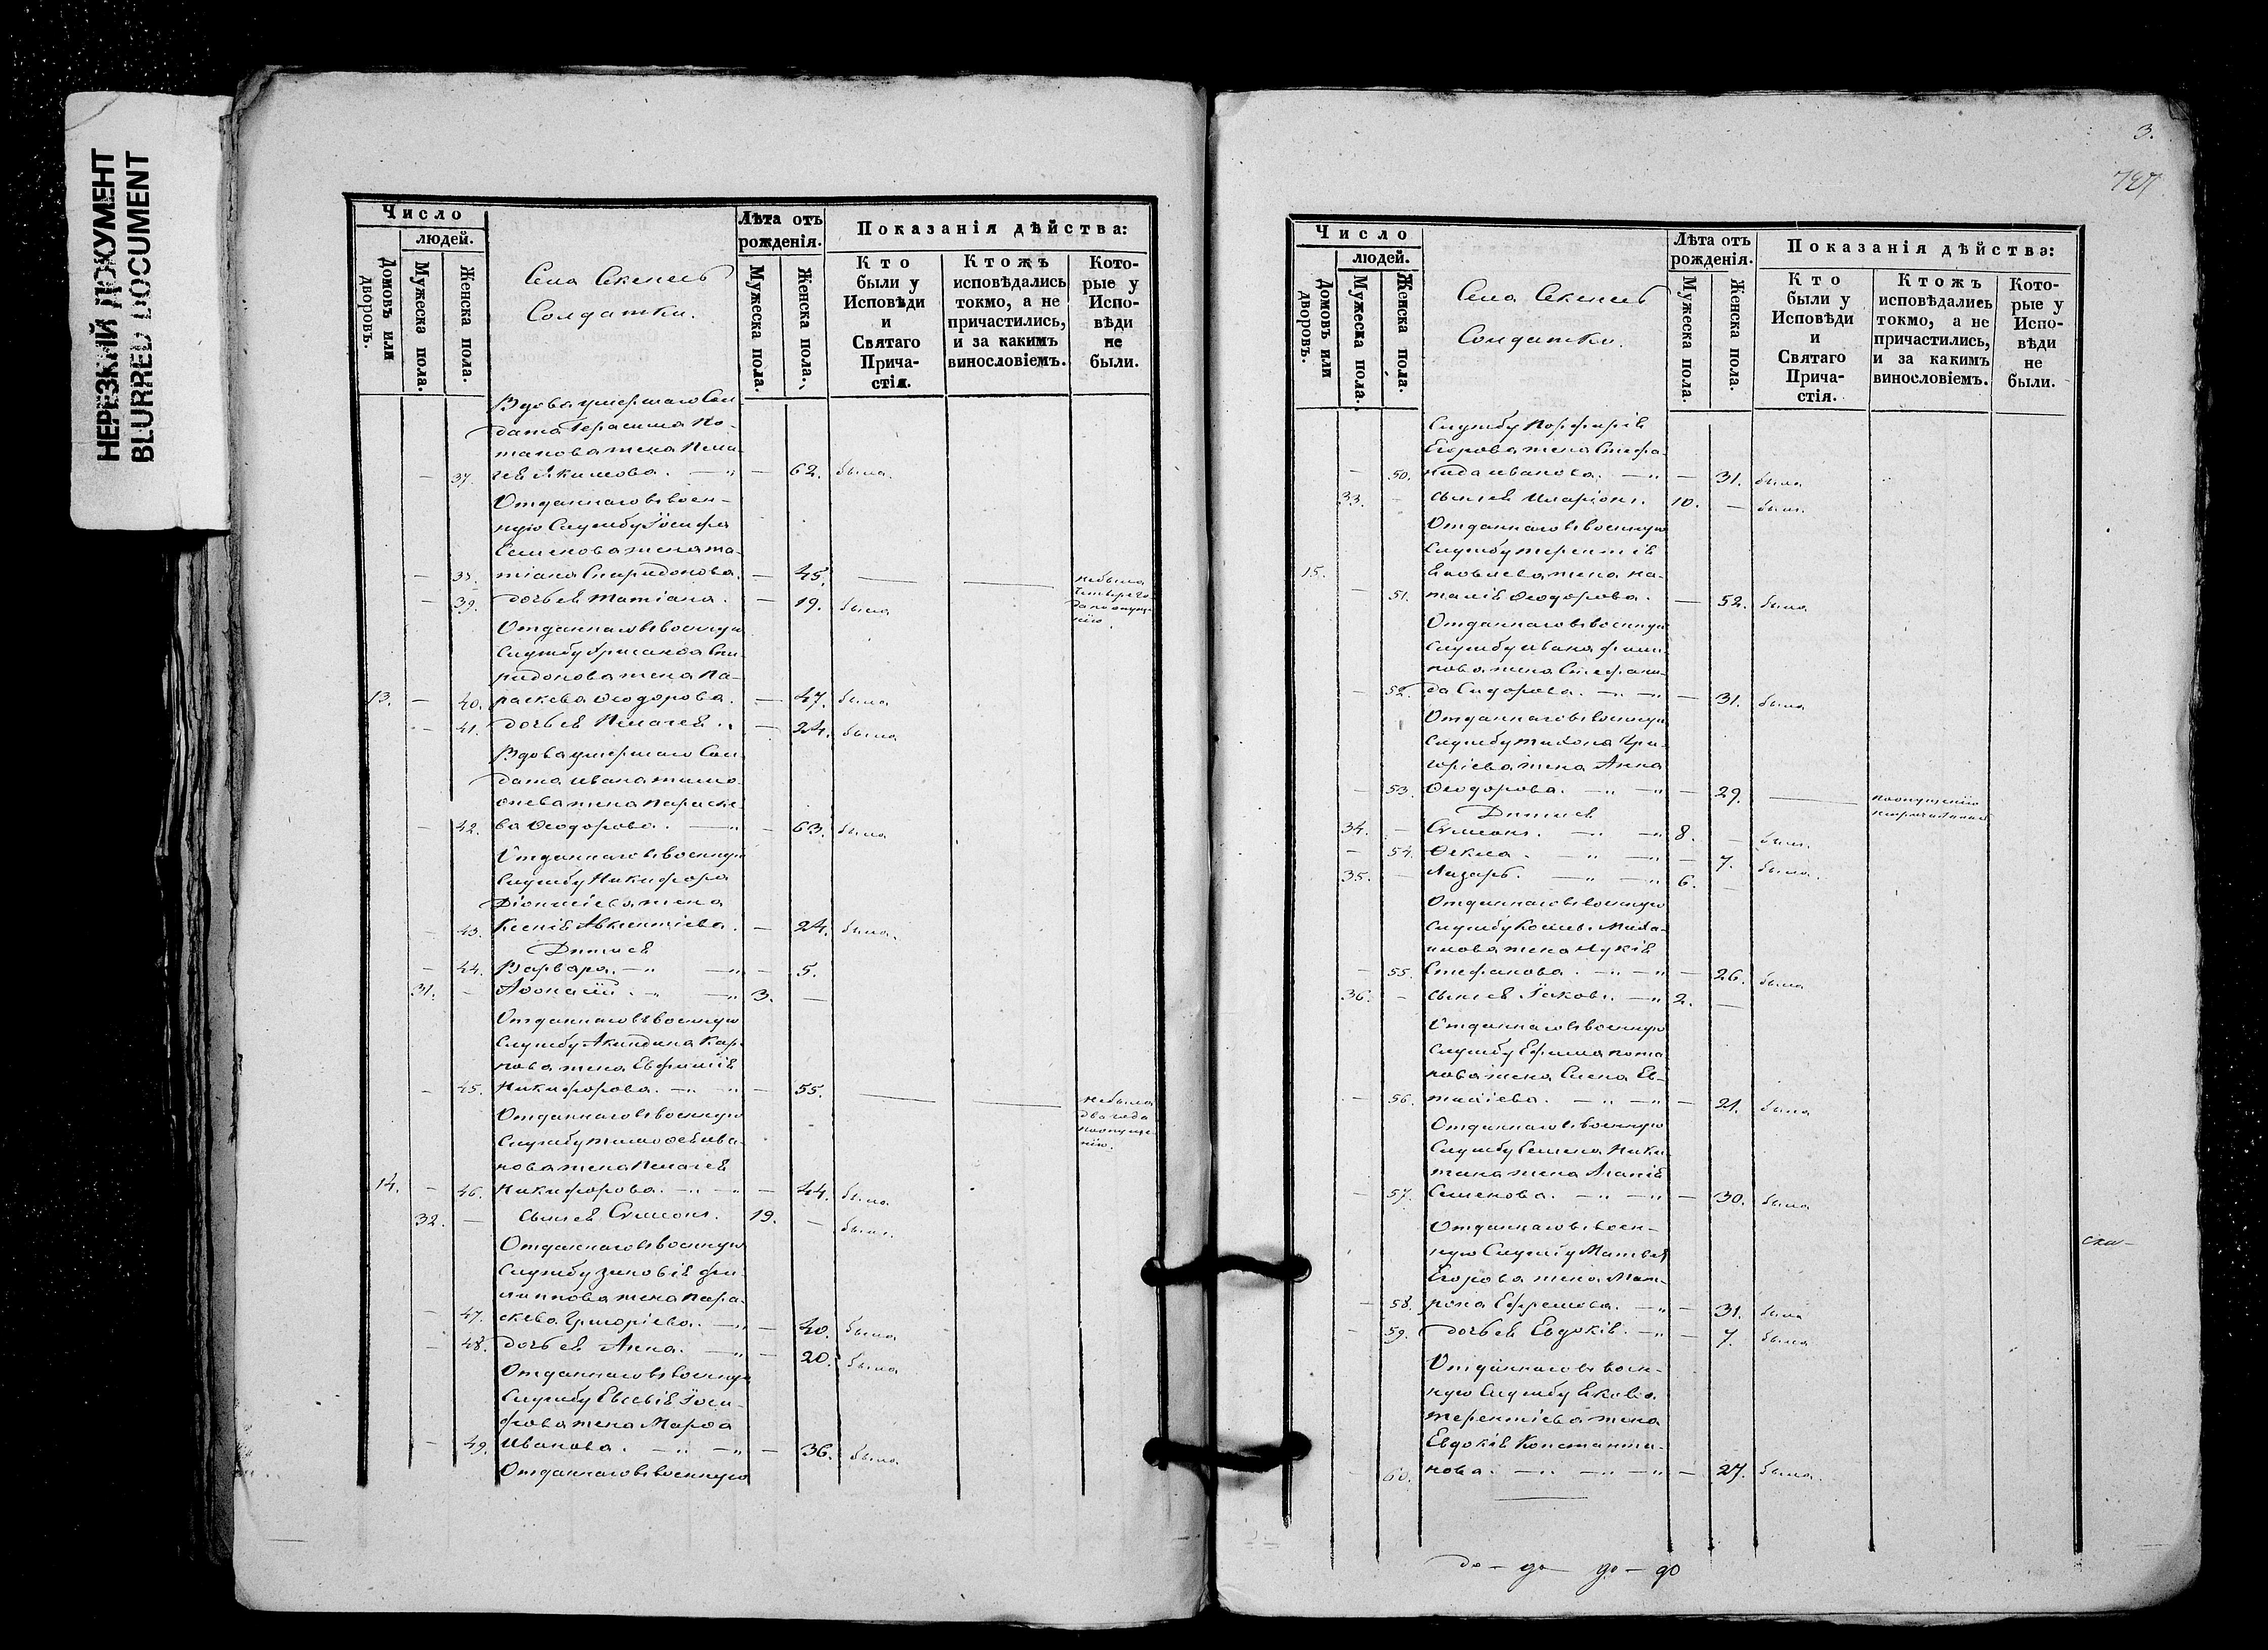 НЕРЕЗКИЙ ДОКУМЕНТ
BLURRED DOCUMENT
Число
людей.
Домовъ или дворовъ.
Мужеска пола.
Женска пола.
Села
Солдатки.
Лѣта отъ рожденія.
Мужеска пола.
Женска пола.
Показанія дѣйства:
Кто были у Исповѣди и Святаго Прича-стія.
Ктожъ исповѣдались токмо, а не причастились, и за какимъ винословіемъ.
Кото-рые у Испо-вѣди не были.
Вдова умершаго Сол
дата Герасима По-
тапова жена Пела
37. гея Якимова. — 62. была
Отданнаго въ воен-
ную Службу Іосифа
Семенова жена та-
38. тіана Спиридонова. — 45. небыла
39. дочь ея Татіана. — 19. была
Отданнаго въ военную
Службу Хрисанфа Спи
ридонова жена Па-
13. — 40. раскева Ѳеодорова. — 47. была
— 41. дочь ея Пелагея. — 24. была
Вдова умершаго Сол
дата Ивана тимо
ѳеева жена Параске
— 42. ва Ѳеодорова. — 63. была
Отданнаго въ военную
Службу Никифора
Діонисіева жена
— 43. Ксенія Авксентіева. — 24. была.
Дети ея
— 44. Варвара. — 5.
31. — Аѳонасій. 3. —
Отданнаго въ военную
Службу Акиндина Кар
пова жена Евфимія
— 45. Никифорова. — 55. небыла два года по опуще-нію.
Отданнаго въ военную
Службу тимоѳея Ива
нова жена Пелагея
14. — 46. Никифорова. — 44. была
32. — сынъ ея Симеонъ. 19. — былъ.
Отданнаго въ военную
Службу Зиновія Фи-
липпова жена Пара-
— 47. скева Григоріева. — 40. была
— 48. дочь ея Анна. — 20. была
Отданнаго въ военную
Службу Евсевія Іоси-
фова жена Марѳа
— 49. Иванова. — 36. была
Отданнаго въ военную
3.
727
Число
людей.
Домовъ или дворовъ.
Мужеска пола.
Женска пола.
Села
Солдатки.
Лѣта отъ рожденія.
Мужеска пола.
Женска пола.
Показанія дѣйства:
Кто были у Исповѣди и Святаго Прича-стія.
Ктожъ исповѣдались токмо, а не причастились, и за какимъ винословіемъ.
Кото-рые у Испо-вѣди не были.
Службу Порфирія
Егорова жена Стефа-
— 50. нида Иванова. — 31. была
33. — сынъ ея Иларіонъ. 10. — былъ.
Отданнаго въ военную
Службу терентія
15. Яковлева жена На-
— 51. талія Ѳеодорова. — 52. была
Отданнаго въ военную
Службу Ивана Фили-
пова жена Стефани-
— 52. да Сидорова. — 31. была
Отданнаго въ военную
Службу тихона Гри-
горіева жена Анна
— 53. Ѳеодорова. — 29. по опущенію
Дети ея
34. — Симеонъ. 8. — былъ.
— 54. Ѳекла. — 7. была.
35. — Лазарь. 6. —
Отданнаго въ военную
Службу Козмы Миха-
илова жена Лукія
— 55. Стефанова. — 26. была
36. — сынъ ея Іаковъ. 2. —
Отданнаго въ военную
Службу Ефима Пота
пова жена Елена Ев-
— 56. — 21. была
Отданнаго въ военную
Службу Семена Ники
тина жена Агапія
— 57. Семенова. — 30. была
Отданнаго въ воен-
ную Службу Матвея
Егорова жена Мат-
— 58. рона Ефремова. — 31. была
— 59. дочь ея Евдокія. — 7. была
Отданнаго въ воен-
ную Службу Якова
терентіева жена
Евдокія Константи-
— 60. нова. — 27. была.